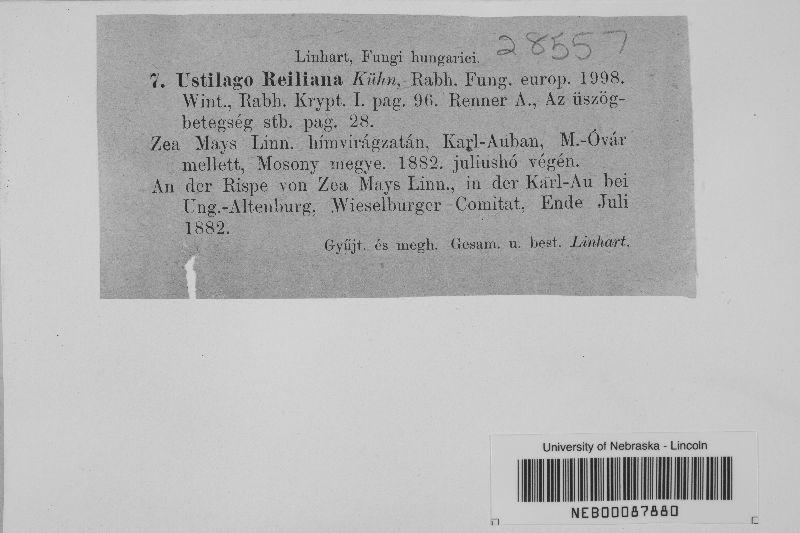 Linhart, Fungi hungarici. 28557
7. Ustilago Reiliana Kühn, Rabh. Fung. europ. 1998.
Wint., Rabh. Krypt. I. pag. 96. Renner A., Az üszög-
betegség stb. pag. 28.
Zea Mays Linn. hímvirágzatán, Karl-Auban, M.-Óvár
mellett, Mosony megye. 1882. juliushó végén.
An der Rispe von Zea Mays Linn., in der Karl-Au bei
Ung.-Altenburg, Wieselburger Comitat, Ende Juli
1882.
Gyűjt. és megh. Gesam. u. best. Linhart.
University of Nebraska - Lincoln
NEB00087880